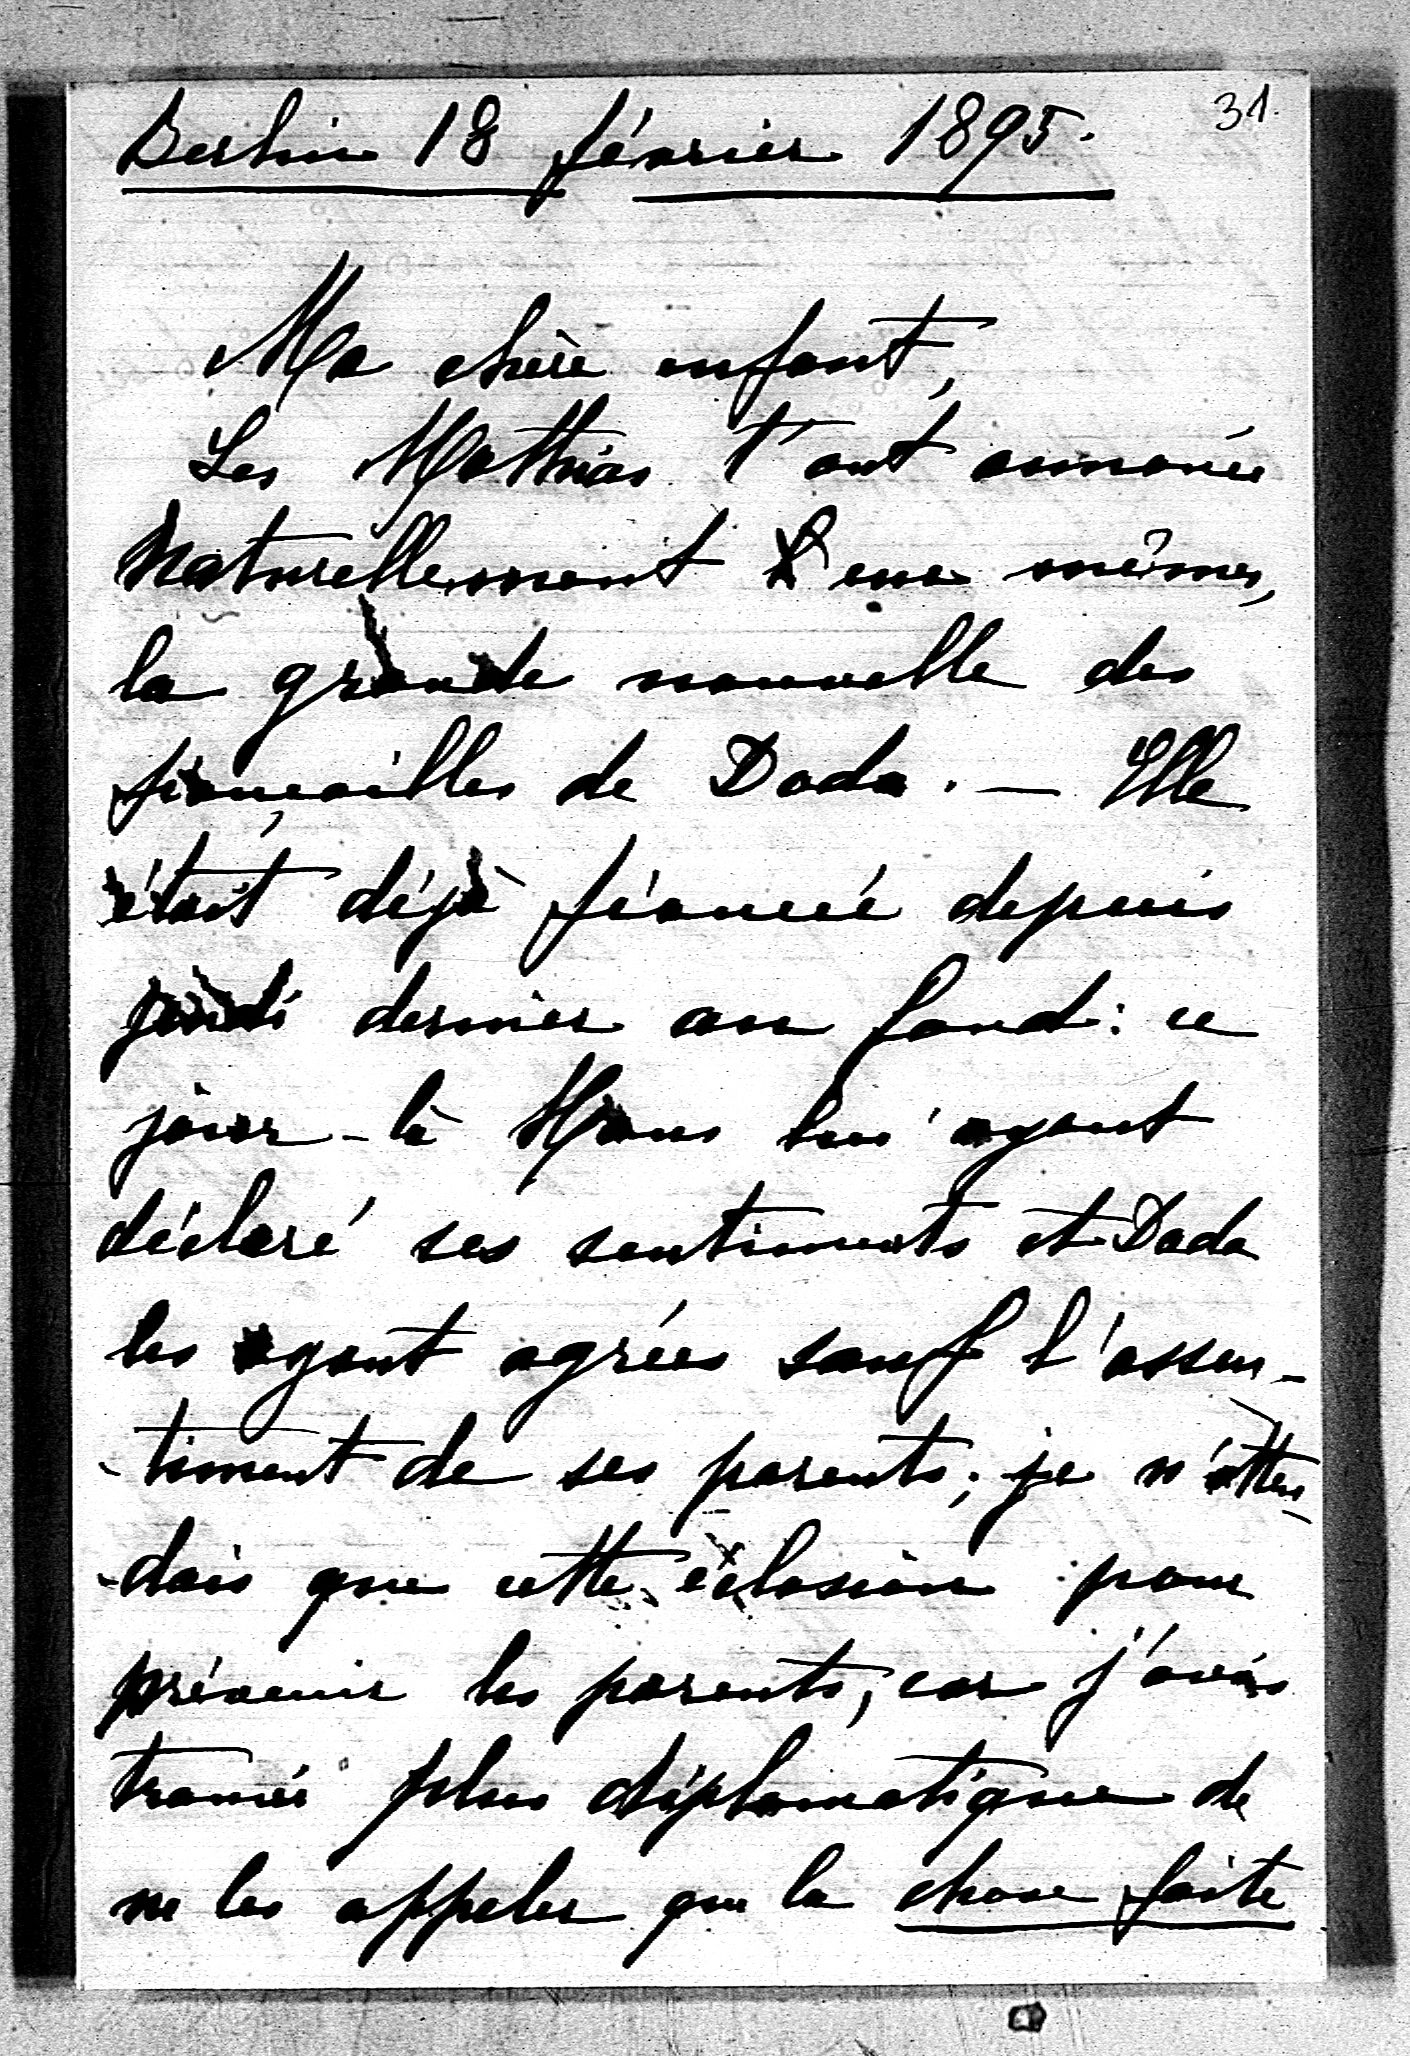 31.
Berlin 18 février 1895.
Ma chère enfant,
Les Mathias t'ont annoncé
naturellement eux mêmes,
la grande nouvelle des
fiançailles de Dada. — Elle
était déjà fiancée depuis
jeudi dernier au fond: ce
jour-là Hans lui ayant
déclaré ses sentiments et Dada
les ayant agréés sauf l'assen-
-timent de ses parents; je n'atten-
-dais que cette éclosion pour
prévenir les parents, car j'avais
trouvé plus diplomatique de
ne les appeler que la chose faite